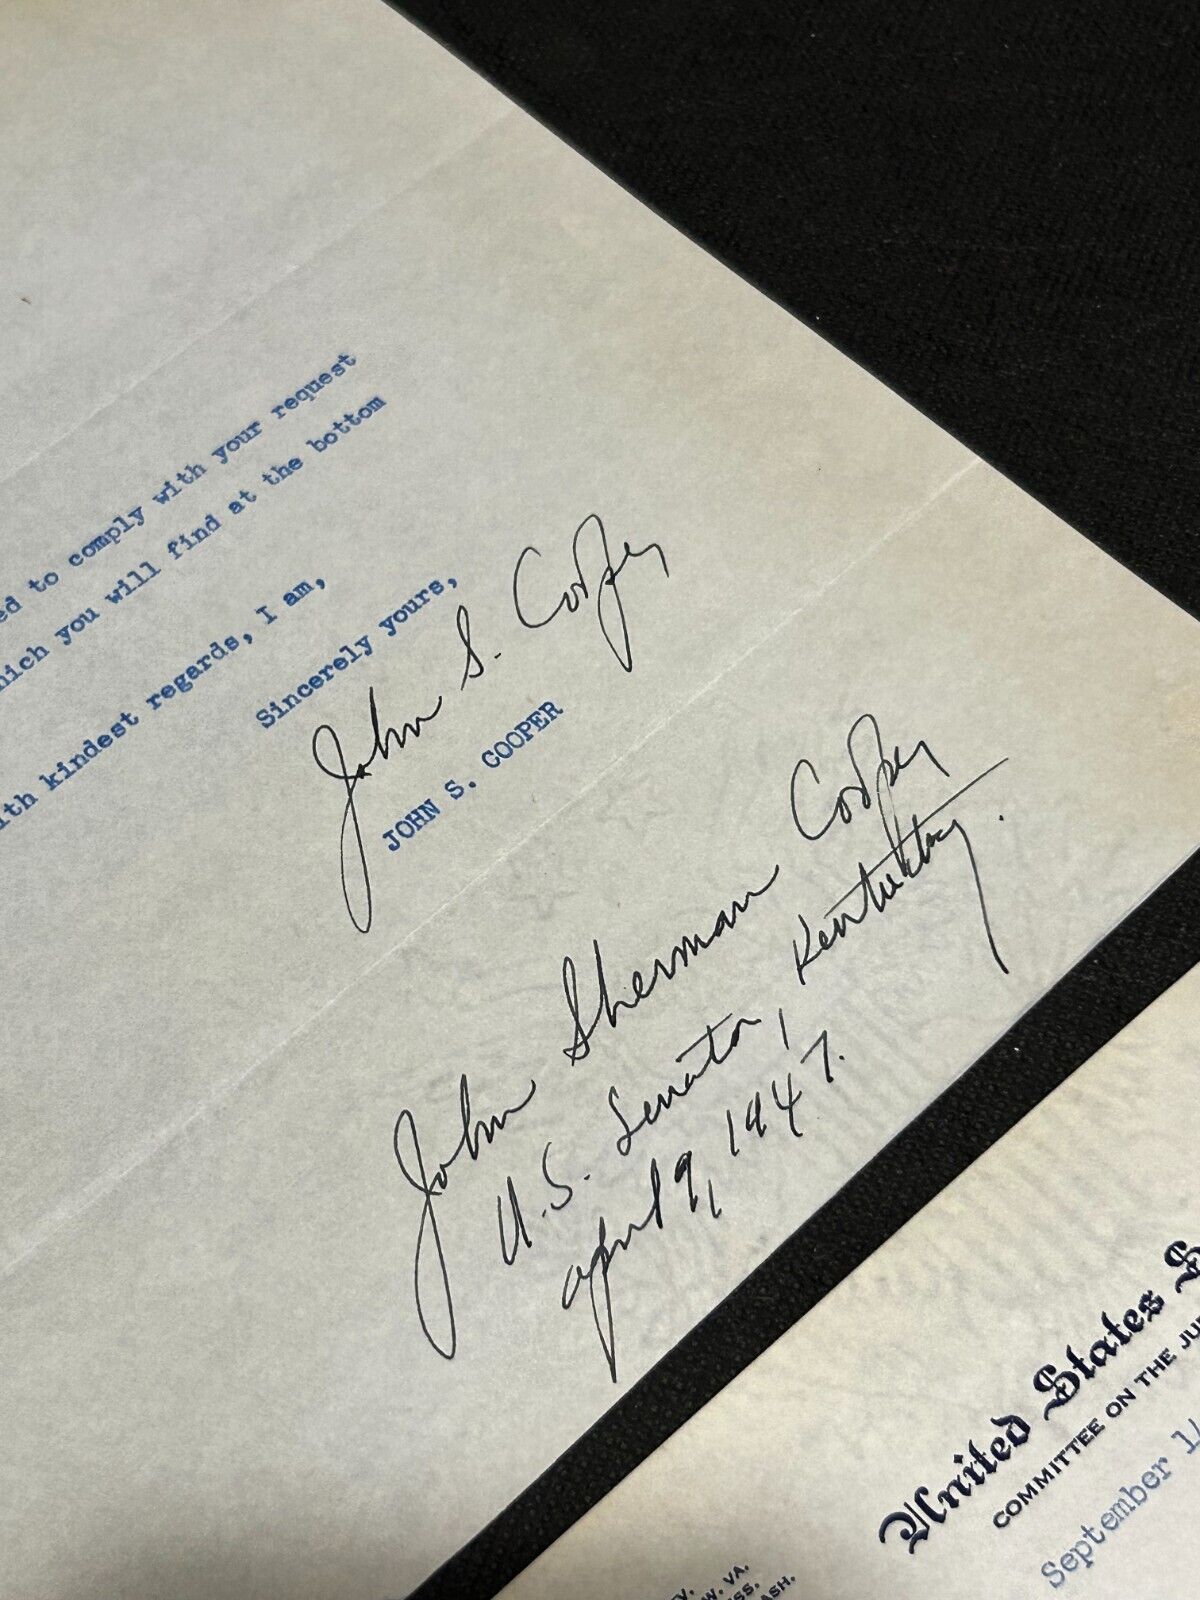 ed to comply with your request
hich you will find at the bottom
ith kindest regards, I am,
Sincerely yours,
John S. Cooper
JOHN S. COOPER
John Sherman Cooper
U.S. Senator, Kentucky.
April 9, 1947.
United States S
COMMITTEE ON THE JU
September 1
W. VA.
ASH.